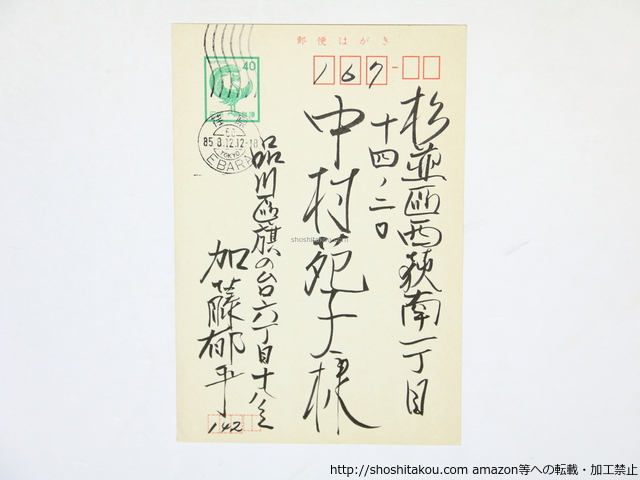 郵便はがき
167
杉並区西荻南一丁目
十四ノ二〇
中村苑子様
品川区旗の台六丁目十八ノ五
加藤郁乎
142
40
荏原
85 8.12.12-18
TOKYO
EBARA
shoshitakou.com
http://shoshitakou.com amazon等への転載・加工禁止